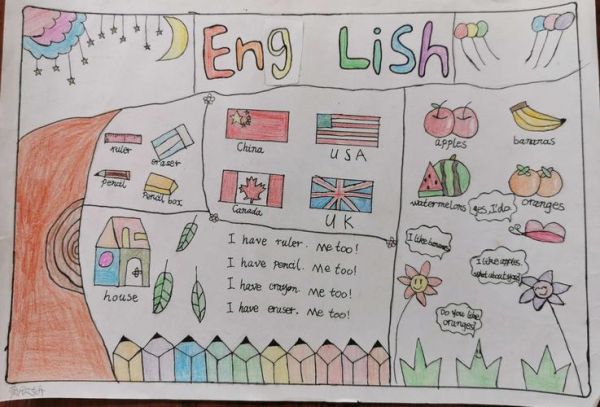 English
ruler
eraser
pencil
pencil box
China
USA
Canada
UK
apples
bananas
watermelons
oranges
yes, I do.
I like bananas
I like apples.
what about you?
Do you like
oranges?
house
I have ruler. Me too!
I have pencil. Me too!
I have crayon. Me too!
I have eraser. Me too!